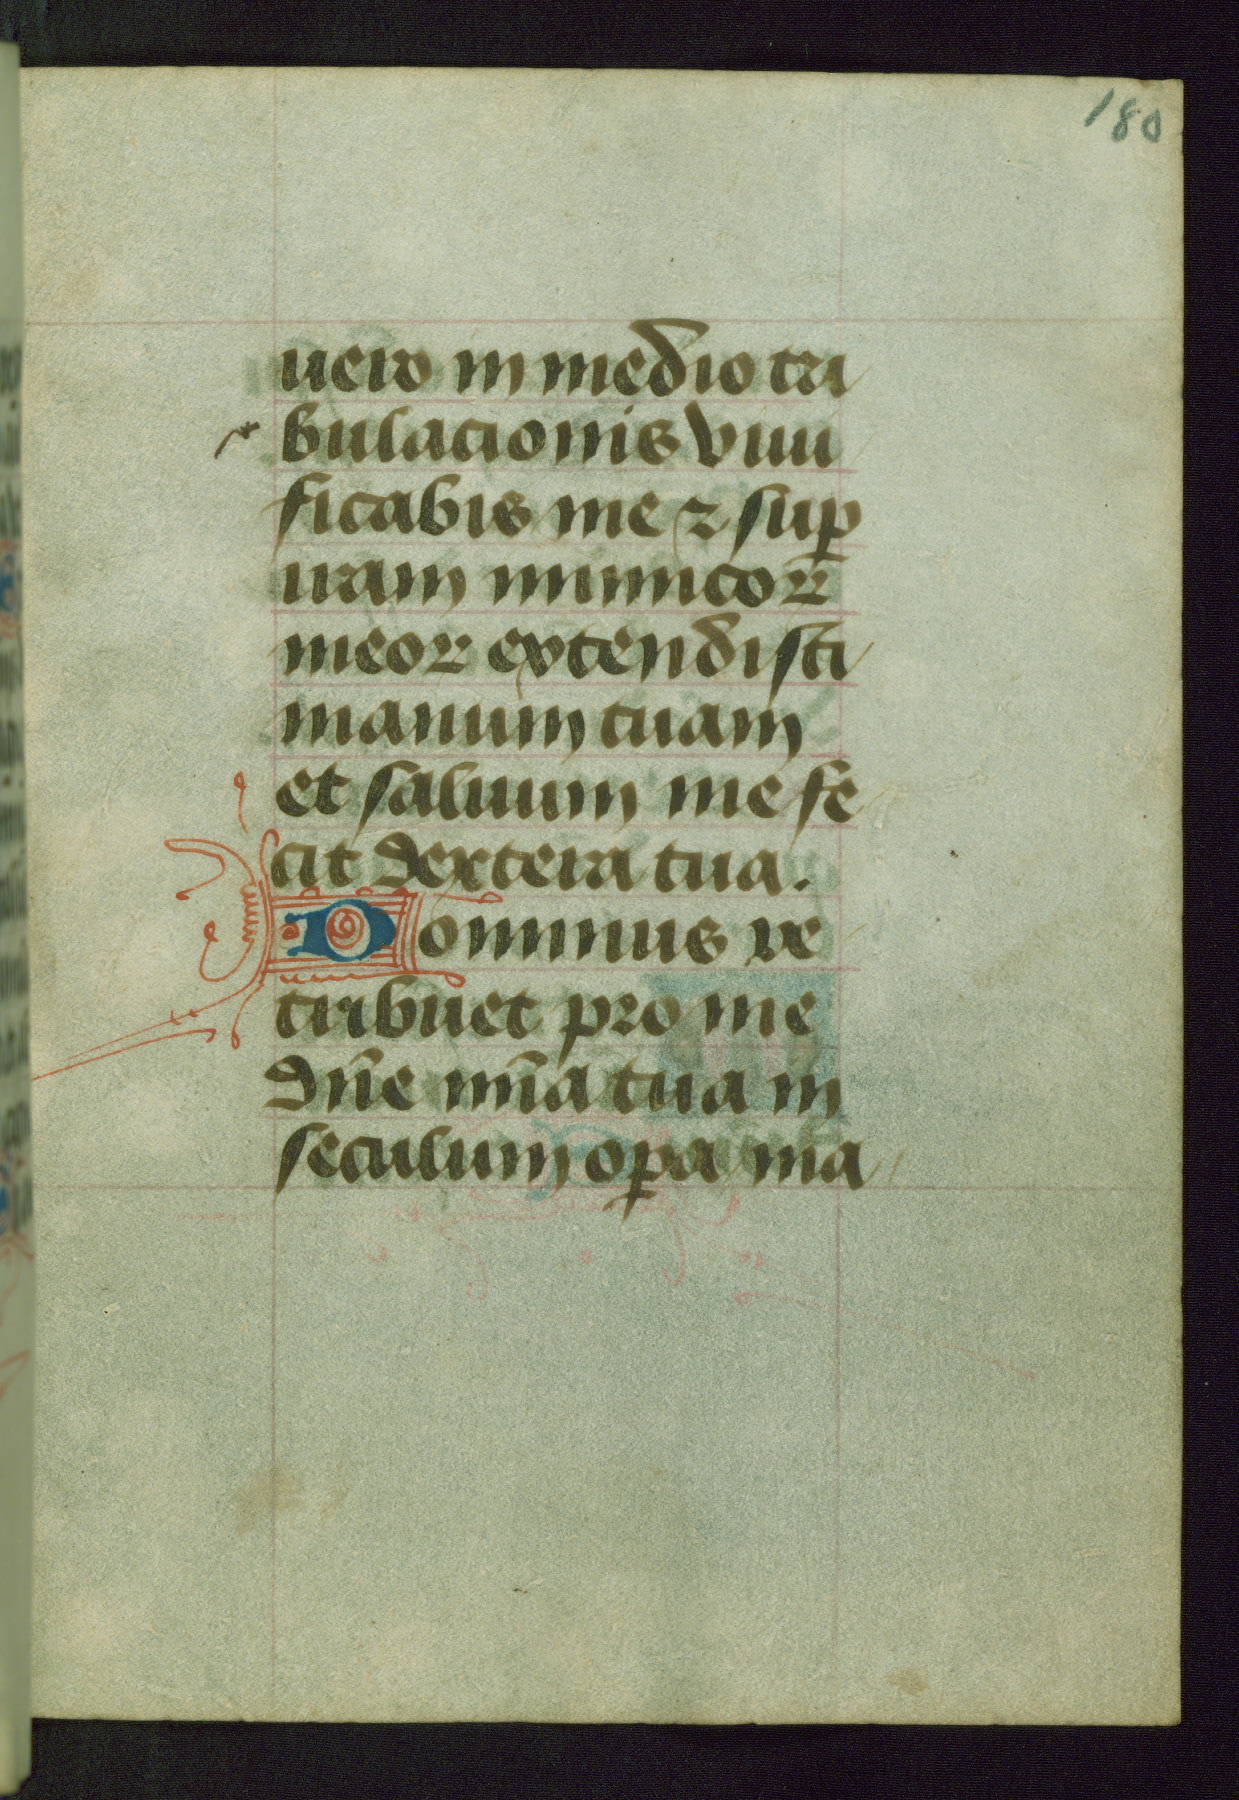 180
uero in medio tri
bulacionis viui
ficabis me ⁊ sup̱
iram inimicoꝝ
meoꝝ extendisti
manum tuam
et saluum me fe
cit dextera tua.
Dominus re
tribuet pro me
dn̄e mīa tua in
seculum oꝑa ma